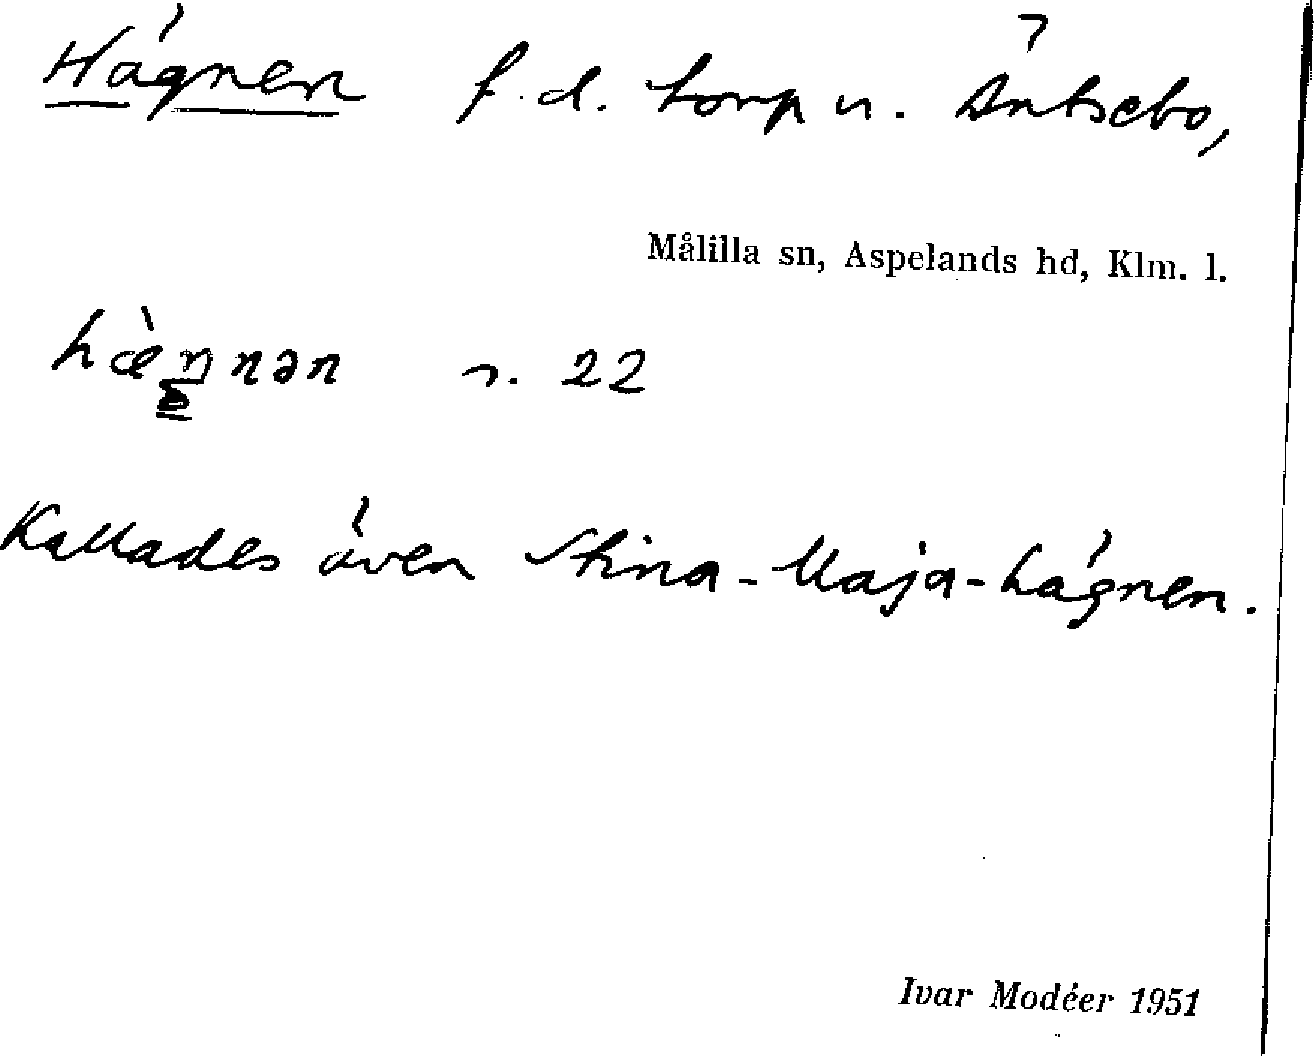 Hägnen f.d. torp u. Äntsebo,
Målilla sn, Aspelands hd, Klm. l.
hæ̀ŋnən s. 22
Kallades även Stina-Maja-hägnen.
Ivar Modéer 1951